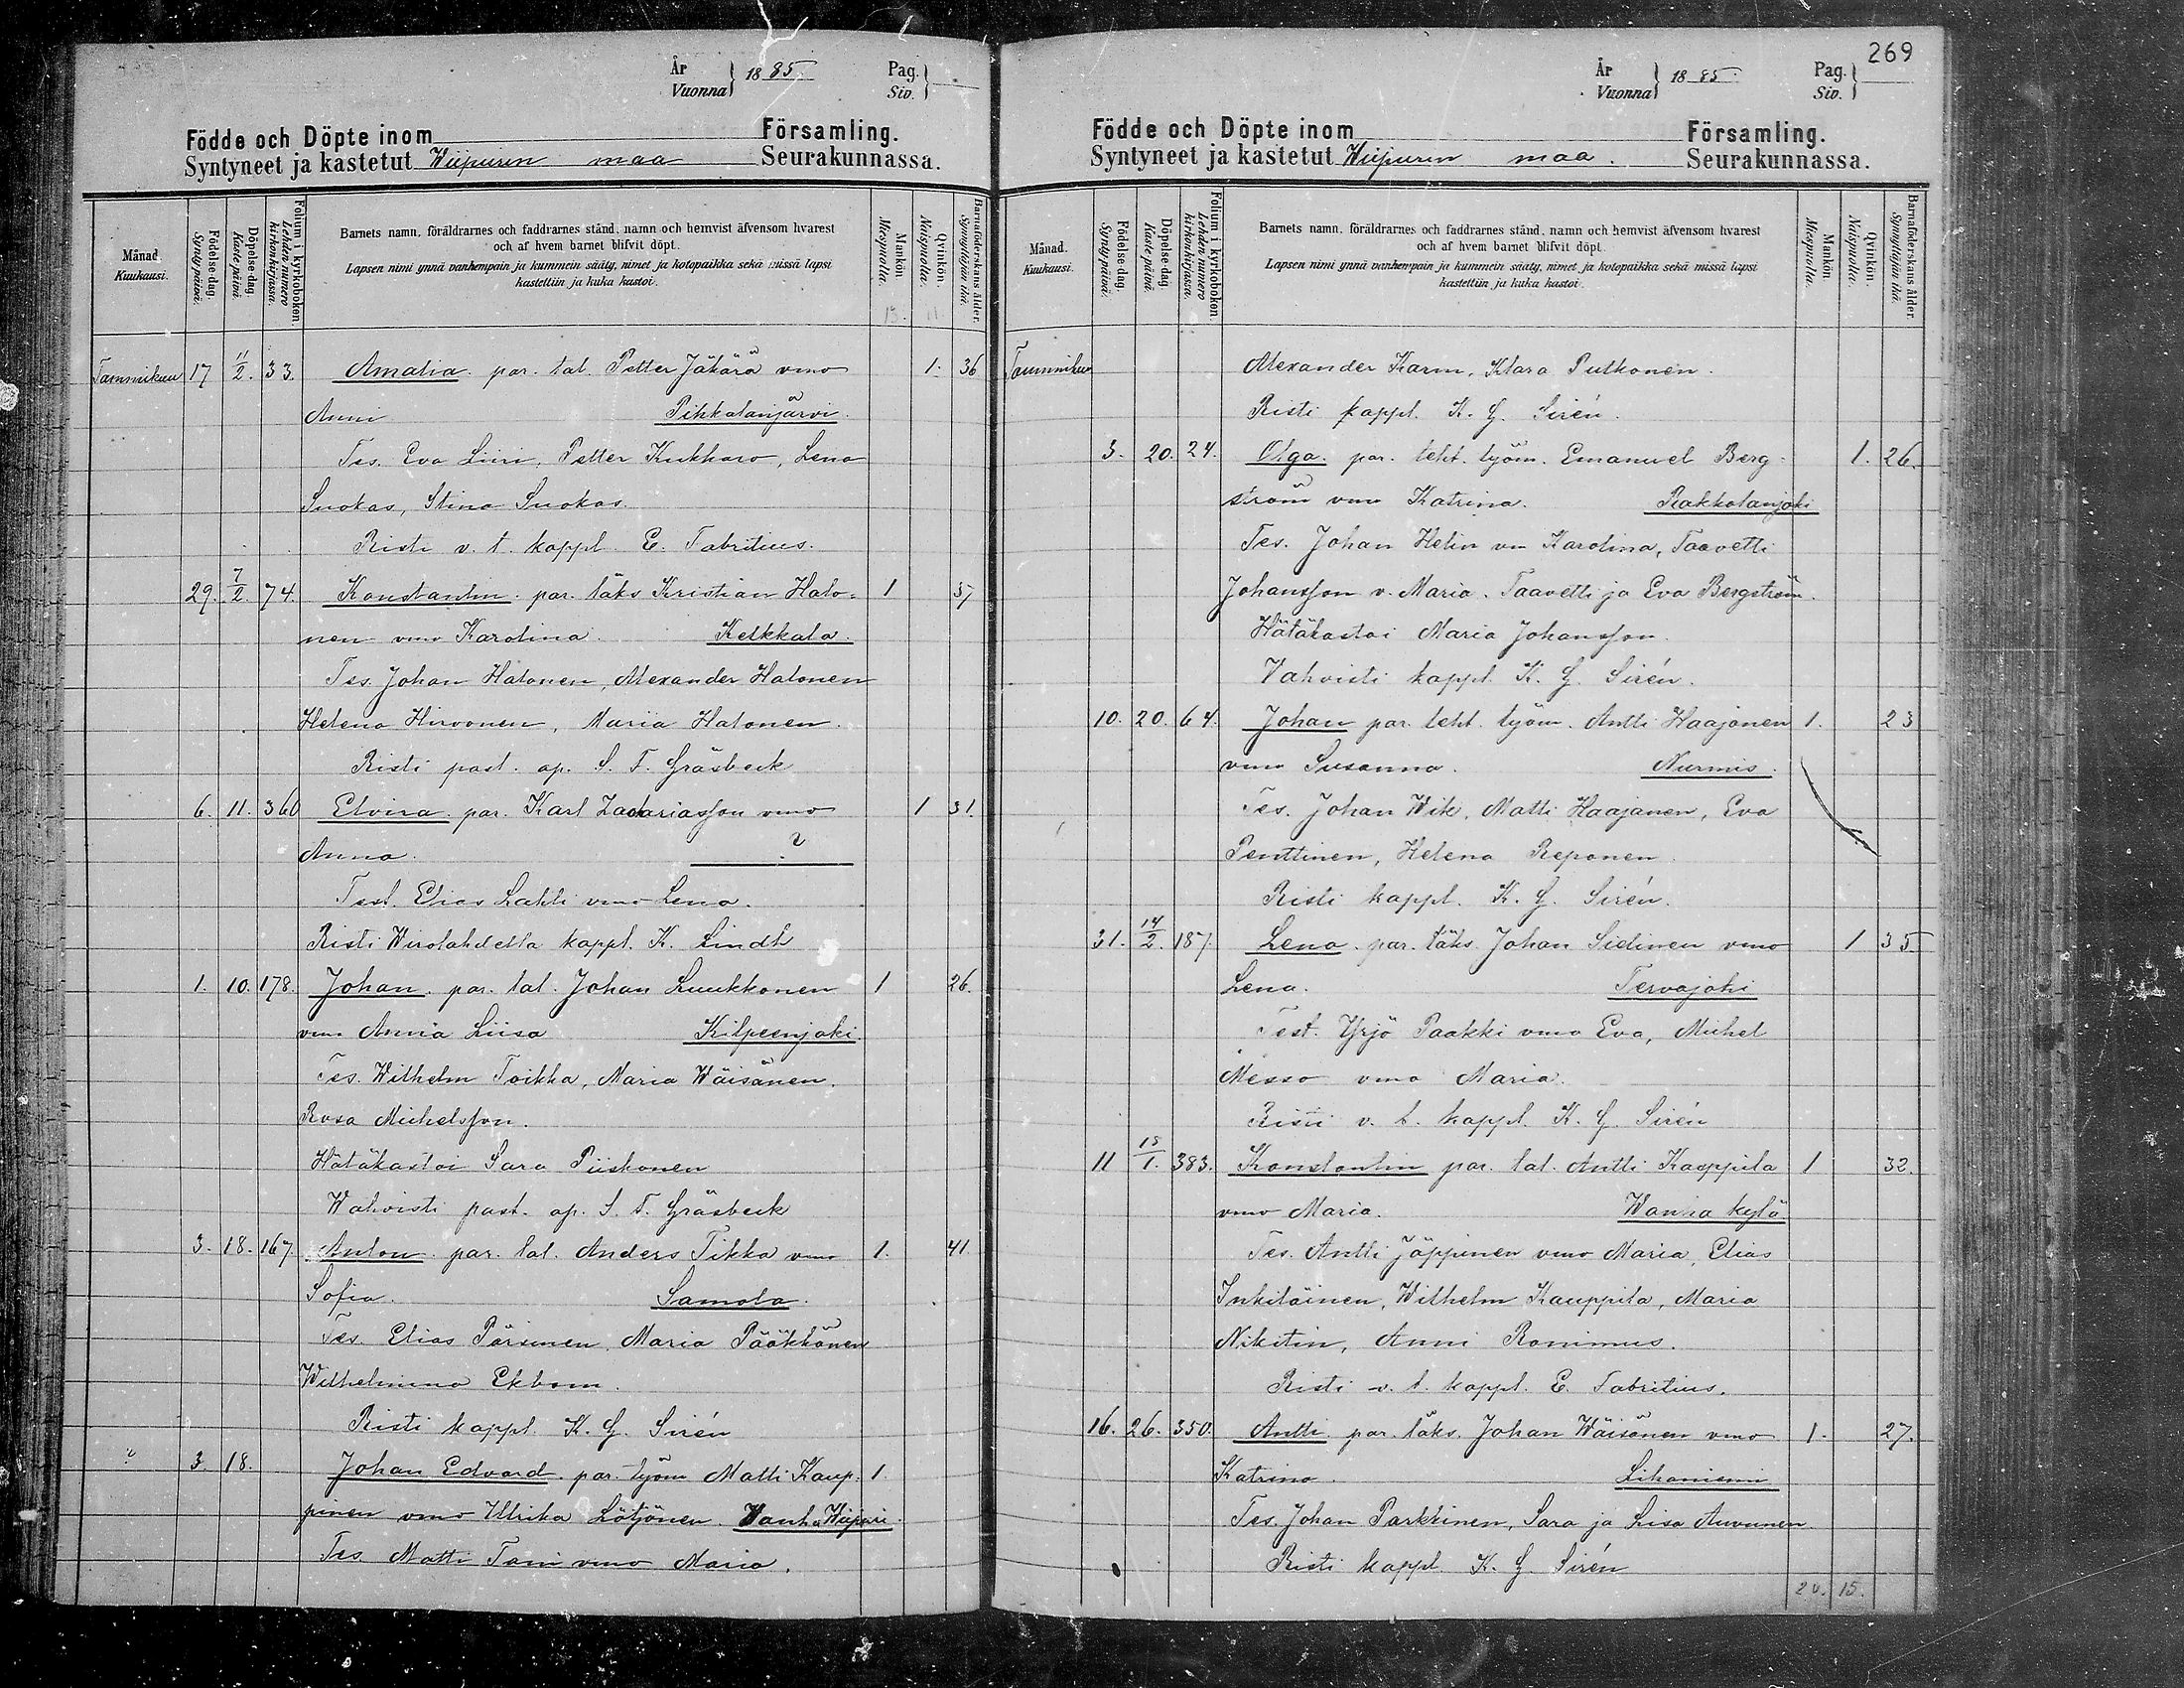 År
Vuonna } 1885. Pag.
Siv. }
Födde och Döpte inom Församling.
Syntyneet ja kastetut Wiipurin maa Seurakunnassa.
Månad.
Kuukausi.
Födelse-dag.
Synty päivä.
Döpelse-dag.
Kaste päivä.
Folium i kyrkoboken.
Lehden numero kirkonkirjassa.
Barnets namn, föräldrarnes och faddrarnes stånd, namn och hemvist äfvensom hvarest
och af hvem barnet blifvit döpt.
Lapsen nimi ynnä vanhempain ja kummein sääty, nimet ja kotopaikka sekä missä lapsi
kastettiin ja kuka kastoi.
Mankön.
Miespuolta.
Qvinkön.
Naispuolta.
Barnaföderskans ålder.
Synnyttäjän ikä.
13. 11.
Tammikuu 17 11/2. 33. Amalia par. tal. Petter Jäkärä vmo 1. 36
Anni Pihkalanjärvi.
Tes. Eva Liiri, Petter Kukharo, Lena
Suokas, Stina Suokas.
Risti v. t. kappl. E. Fabritius.
29. 7/2. 74. Konstantin. par. läks Kristian Halo- 1 37
nen vmo Karolina. Kelkkala.
Tes. Johan Halonen, Alexander Halonen
Helena Hirvonen, Maria Halonen.
Risti past. ap. S. F. Gräsbeck
6. 11. 360 Elvira par. Karl Zachariasson vmo 1 31.
Anna. ?
Test. Elias Lahti vmo Lena.
Risti Wirolahdella kappl. K. Lindh
1. 10. 178. Johan. par. tal. Johan Luukkonen 1 26.
vmo Anna Liisa Kilpeenjoki.
Tes. Wilhelm Toikka, Maria Wäisänen.
Rosa Michelsson.
Hätäkastoi Sara Piiskonen
Wahvisti past. ap. S. F. Gräsbeck
3. 18. 167. Anton par. tal. Anders Tikka vmo 1. 41.
Sofia. Samola.
Tes. Elias Pärsinen, Maria Pääkkönen
Wilhelmina Ekbom.
Risti kappl. K. G. Sirén
" 3. 18. Johan Edvard. par. työm Matti Kaup- 1.
pinen vmo Ulrika Lötjönen. Wanha Wiipuri.
Tes. Matti Tani vmo Maria.
269
År
Vuonna } 1885. Pag.
Siv. }
Födde och Döpte inom Församling.
Syntyneet ja kastetut Wiipurin maa. Seurakunnassa.
Månad.
Kuukausi.
Födelse-dag.
Synty päivä.
Döpelse-dag.
Kaste päivä.
Folium i kyrkoboken.
Lehden numero kirkonkirjassa.
Barnets namn, föräldrarnes och faddrarnes stånd, namn och hemvist äfvensom hvarest
och af hvem barnet blifvit döpt.
Lapsen nimi ynnä vanhempain ja kummein sääty, nimet ja kotopaikka sekä missä lapsi
kastettiin ja kuka kastoi.
Mankön.
Miespuolta.
Qvinkön.
Naispuolta.
Barnaföderskans ålder.
Synnyttäjän ikä.
Tammikuu Alexander Karm, Klara Putkonen.
Risti kappl. K. G. Sirén.
3. 20. 24. Olga. par. leht. työm. Emanuel Berg- 1. 26.
ström vmo Katrina. Rakkolanjoki
Tes. Johan Helin vm Karolina, Taavetti
Johansson v. Maria. Taavetti ja Eva Bergström.
Hätäkastoi Maria Johansson.
Vahvisti kappl. K. G. Sirén.
10. 20. 64. Johan par. leht. työm. Antti Haajanen 1. 23
vmo Susanna. Nurmis.
Tes. Johan Wik, Matti Haajanen, Eva
Penttinen, Helena Reponen.
Risti kappl. K. G. Sirén.
31. 14/2. 187. Lena. par. läks. Johan Sielinen vmo 1 35
Lena. Tervajoki
Test. Yrjö Paakki vmo Eva, Michel
Messo vmo Maria.
Risti v. t. kappl. K. G. Sirén
11 18/1. 383. Konstantin par. tal. Antti Kauppila 1 32.
vmo Maria. Wanha kylä
Tes. Antti Jäppinen vmo Maria, Elias
Inkiläinen, Wilhelm Kauppila, Maria
Nikitin, Anni Ronimus.
Risti v. t. kappl. E. Fabritius.
16. 26. 350. Antti par. läks. Johan Wäisänen vmo 1. 27.
Katrina. Lihaniemi
Tes. Johan Parkkinen, Sara ja Lisa Auvinen.
Risti kappl. K. G. Sirén
20. 15.